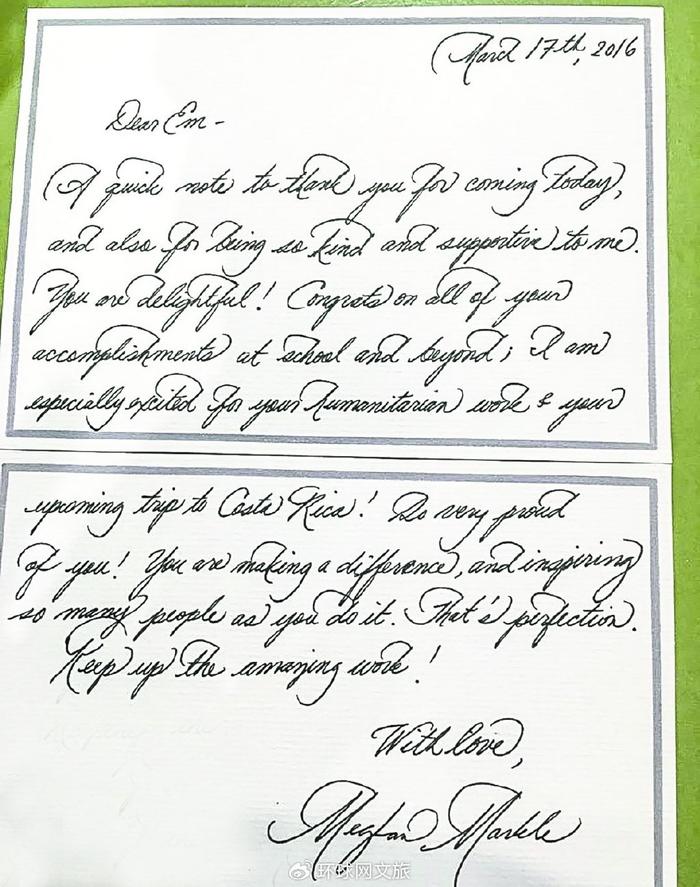 March 17th, 2016
Dear Em -
A quick note to thank you for coming today,
and also for being so kind and supportive to me.
You are delightful! Congrats on all of your
accomplishments at school and beyond; I am
especially excited for your humanitarian work & your
upcoming trip to Costa Rica! So very proud
of you! You are making a difference, and inspiring
so many people as you do it. That's perfection.
Keep up the amazing work!
With love,
Meghan Markle
环球网文旅